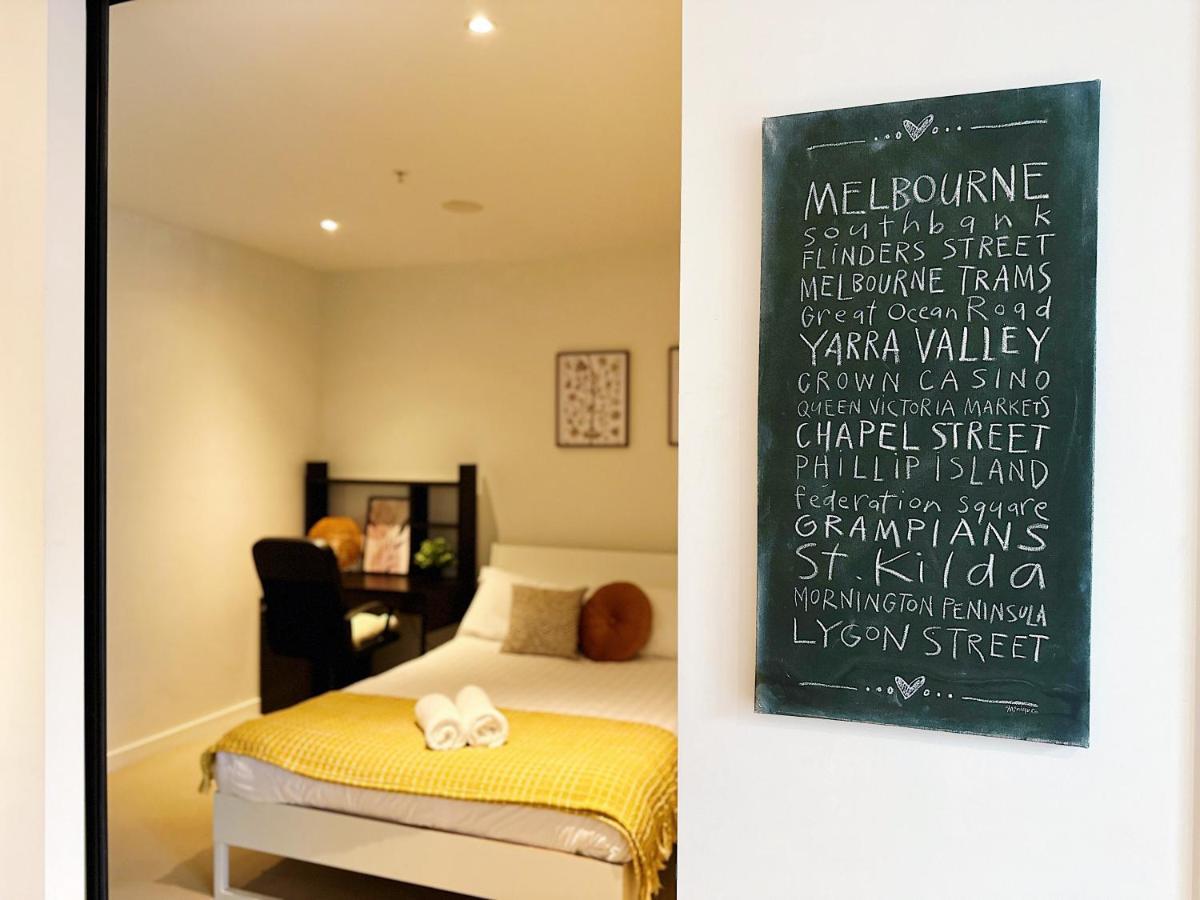 MELBOURNE
southbank
FLINDERS STREET
MELBOURNE TRAMS
Great Ocean Road
YARRA VALLEY
CROWN CASINO
QUEEN VICTORIA MARKETS
CHAPEL STREET
PHILLIP ISLAND
federation square
GRAMPIANS
St. Kilda
MORNINGTON PENINSULA
LYGON STREET